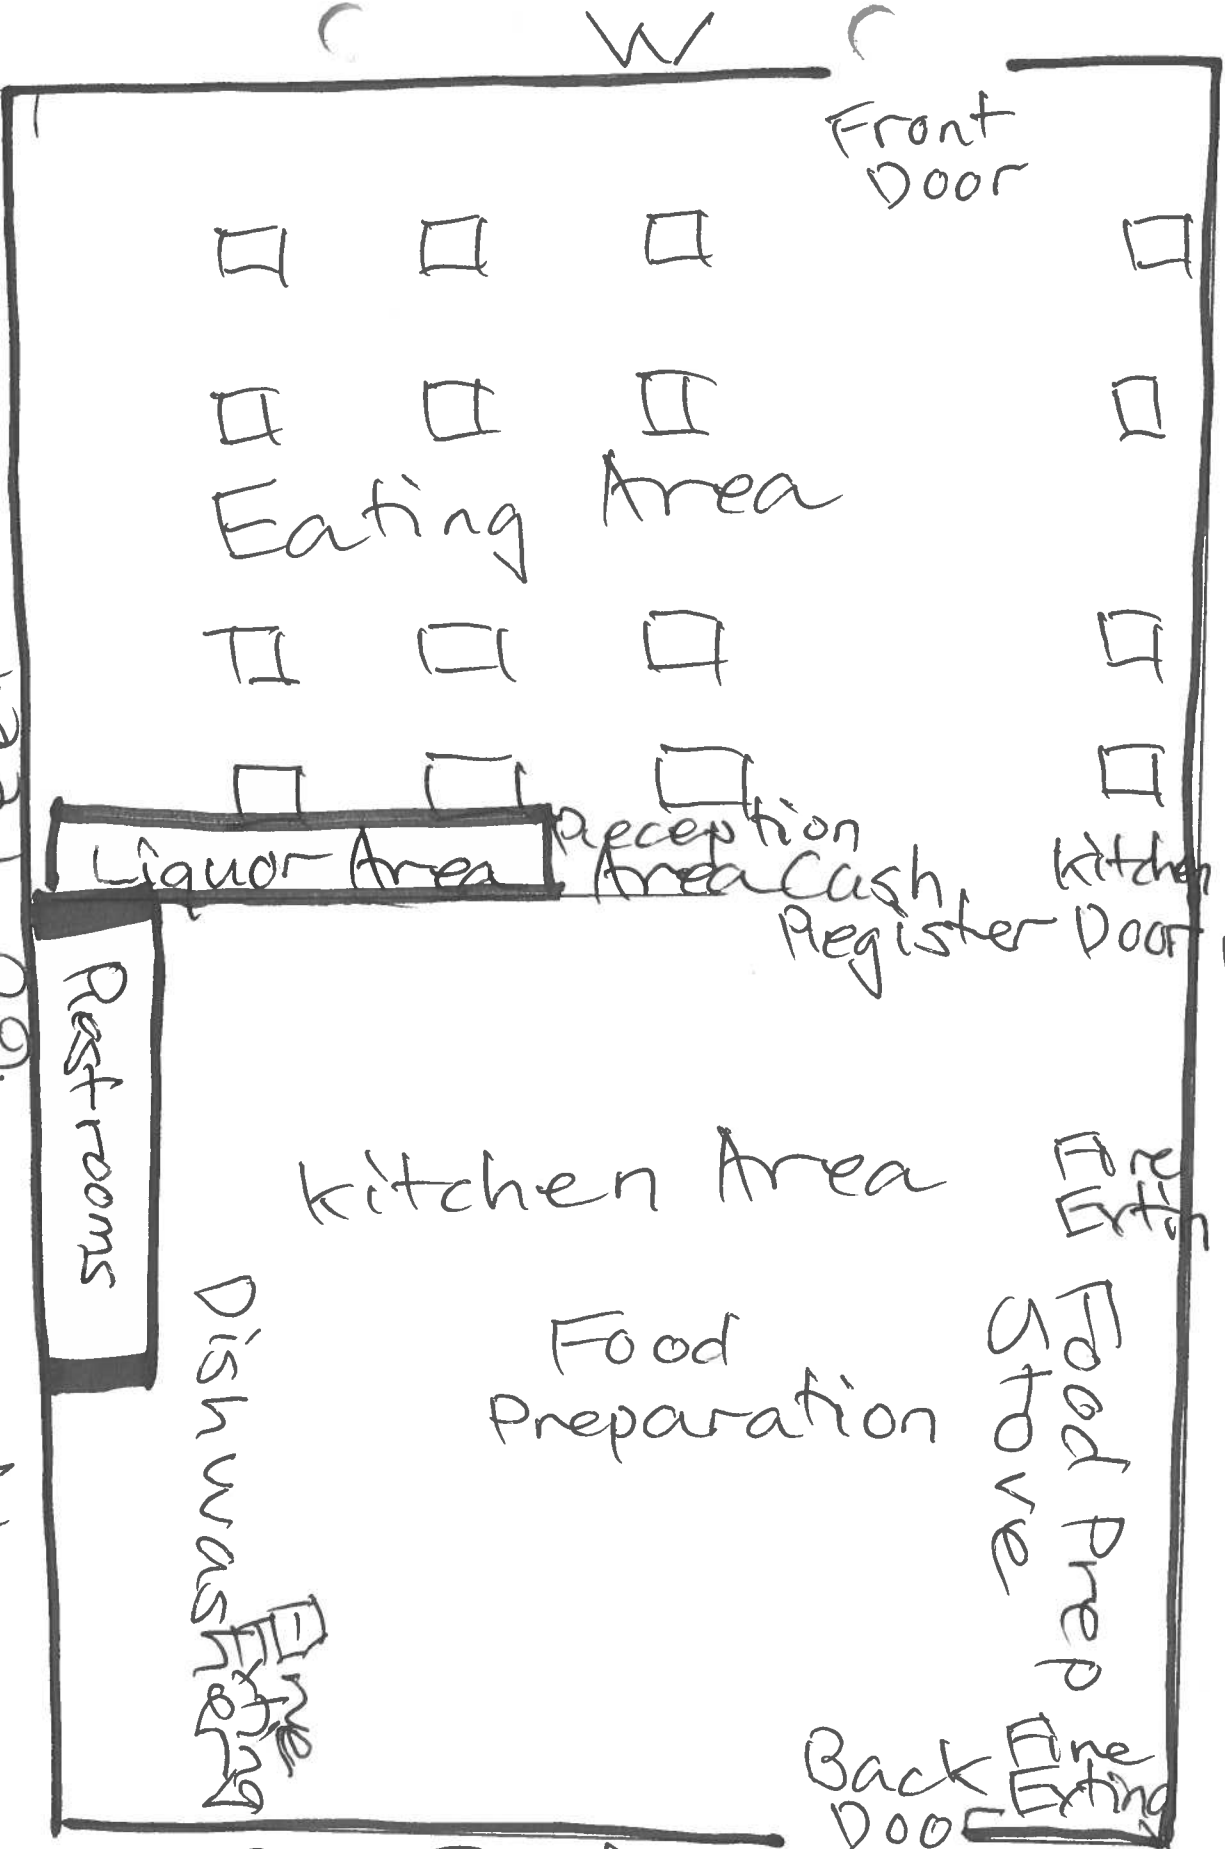 W
Front
Door
Eating Area
Liquor Area
Reception
Area Cash
Register
Kitchen
Door
Restrooms
Kitchen Area
Fire
Extin
Food
Preparation
Stove
Food Prep
Dishwashing
Fire
Ext
Back
Doo
Fire
Exting